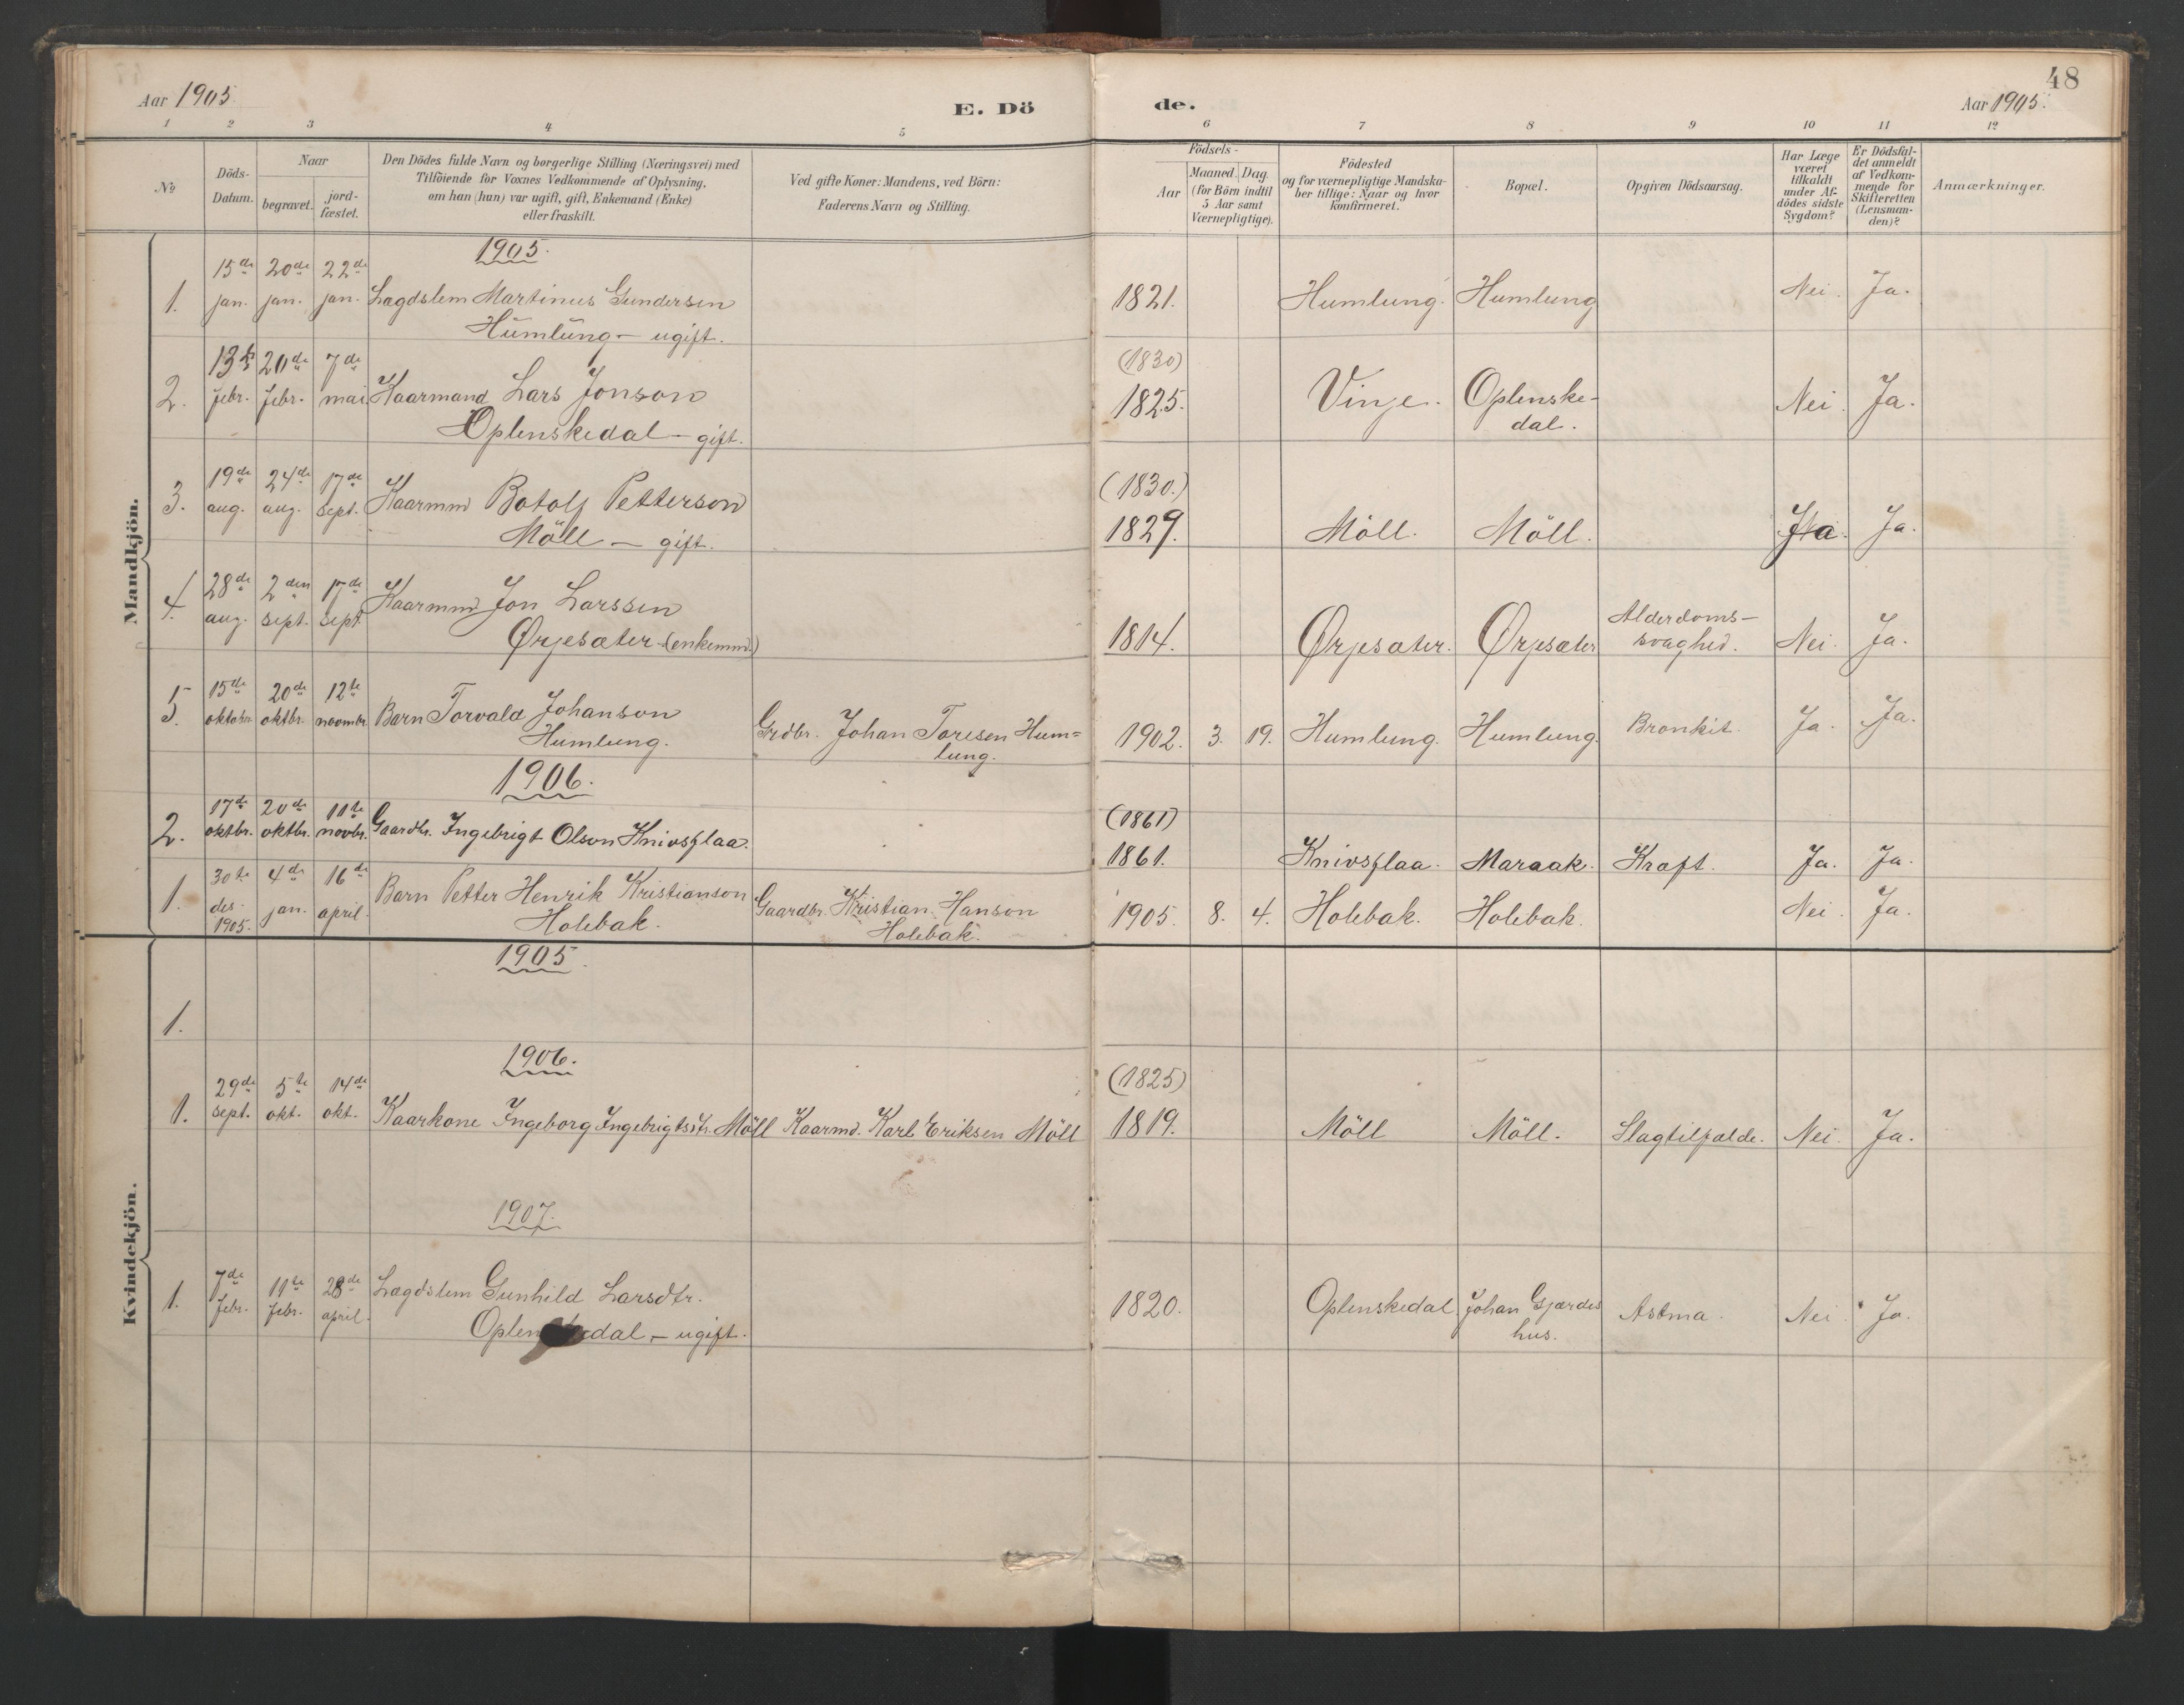 48
Aar 1905.
E. Dö
de.
Aar 1905.
1 2 3 4 5 6 7 8 9 10 11 12
No
Döds-
Datum.
Naar
begravet.
jord-
fæstet.
Den Dödes fulde Navn og borgerlige Stilling (Næringsvei) med
Tilföiende for Voxnes Vedkommende af Oplysning,
om han (hun) var ugift, gift, Enkemand (Enke)
eller fraskilt.
Ved gifte Koner: Mandens, ved Börn:
Faderens Navn og Stilling.
Födsels-
Aar
Maaned. Dag.
(for Börn indtil
5 Aar samt
Værnepligtige).
Födested
og for værnepligtige Mandska-
ber tillige: Naar og hvor
konfirmeret.
Bopæl.
Opgiven Dödsaarsag.
Har Læge
været
tilkaldt
under Af-
dödes sidste
Sygdom?
Er Dödsfal-
det anmeldt
af Vedkom-
mende for
Skifteretten
(Lensman-
den)?
Anmærkninger.
Mandkjön.
1905.
15de 20de 22de
1. jan. jan. jan. Lægdslem Martinus Gundersen 1821. Humlung. Humlung Nei. Ja.
Humlung - ugift.
13de 20de 7de (1830)
2. febr. febr. mai Kaarmand Lars Jonson 1825. Vinje. Oplenske- Nei. Ja.
Oplenskedal - gift. dal.
19de 24de 17de (1830.)
3. aug. aug. sept. Kaarmnd Botolf Petterson 1829. Möll. Möll. Ja. Ja.
Möll - gift.
28de 2den 17de Alderdoms-
4. aug. sept. sept. Kaarmnd Jon Larssen 1814. Ørjesæter. Ørjesæter svaghed. Nei. Ja.
Ørjesæter (enkemnd.)
15de 20de 12te
5. oktober oktbr. novmbr. Barn Torvald Johanson Grdbr. Johan Toresen Hum= 1902. 3. 19. Humlung. Humlung. Bronkit. Ja. Ja.
Humlung. lung.
1906.
17de 20de 11te (1861)
2. oktbr. oktbr. novbr. Gaardbr. Ingebrigt Olson Knivsflaa. 1861. Knivsflaa. Maraak. Kræft. Ja. Ja.
30te 4de 16de
1. des. 1905. jan. april. Barn Petter Henrik Kristianson Gaardbr. Kristian Hanson 1905. 8. 4. Holebak. Holebak. Nei. Ja.
Holebak. Holebak.
Kvindekjön.
1905.
1.
1906.
29de 5te 14de (1825)
1. sept. okt. okt. Kaarkone Ingeborg Ingebrigtsdtr. Möll Kaarmd. Karl Eriksen Möll 1819. Möll Möll. Slagtilfælde. Nei. Ja.
1907.
7de 11te 28de
1. febr. febr. april. Lægdslem Gunhild Larsdtr. 1820. Oplenskedal Johan Gjærdes Astma. Nei. Ja.
Oplenskedal - ugift. hus.